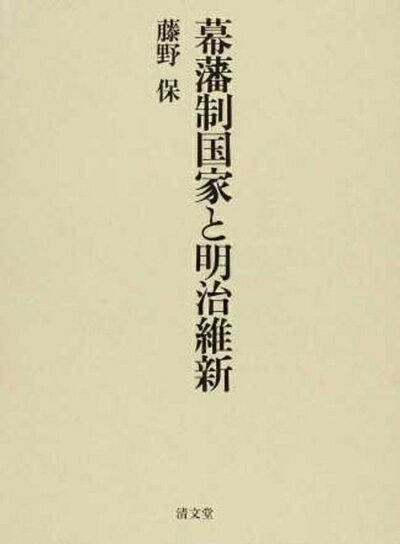 幕藩制国家と明治維新
藤野 保
清文堂